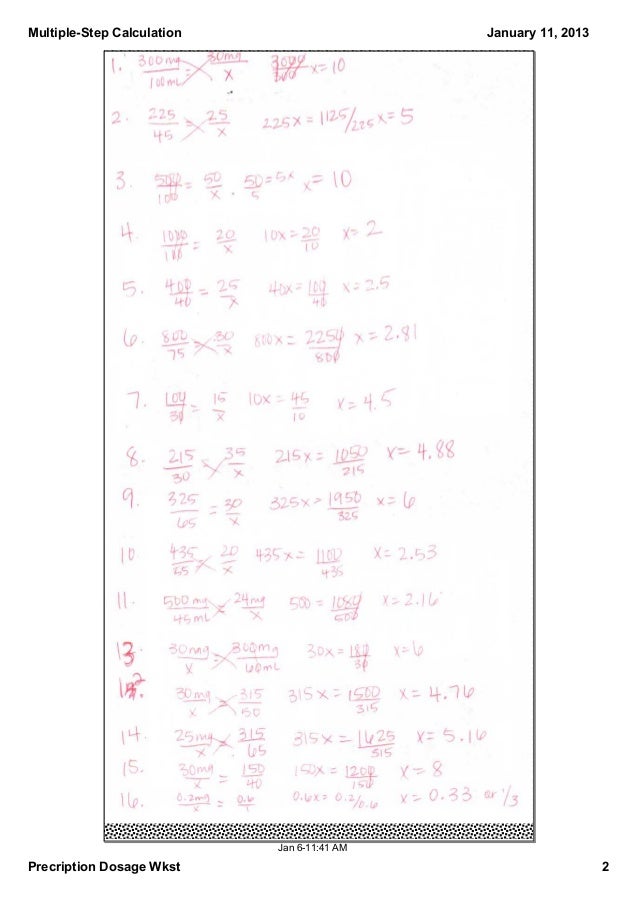 Multiple-Step Calculation January 11, 2013
1. 300mg/100mL 30mg/x 3000/300 x=10
2. 225/45 25/x 225x = 1125/225 x=5
3. 500/100 = 50/x . 50/5 = 5x x=10
4. 1000/100 = 20/x 10x = 20/10 x=2
5. 400/40 = 25/x 40x = 100/40 x=2.5
6. 800/75 30/x 800x = 2250/800 x=2.81
7. 100/30 = 15/x 10x = 45/10 x=4.5
8. 215/30 35/x 215x = 1050/215 x=4.88
9. 325/65 = 30/x 325x = 1950/325 x=6
10 435/55 20/x 435x = 1100/435 x=2.53
11. 500mg/45mL = 24mg/x 500 = 1080/500 x=2.16
13. 30mg/x = 300mg/60mL 30x = 180/30 x=6
12. 30mg/x = 315/50 315x = 1500/315 x=4.76
14. 25mg/x 315/65 315x = 1625/315 x=5.16
15. 30mg/x = 150/40 150x = 1200/150 x=8
16. 0.2mg/x = 0.6/1 0.6x = 0.2/0.6 x=0.33 or 1/3
Jan 6-11:41 AM
Precription Dosage Wkst 2